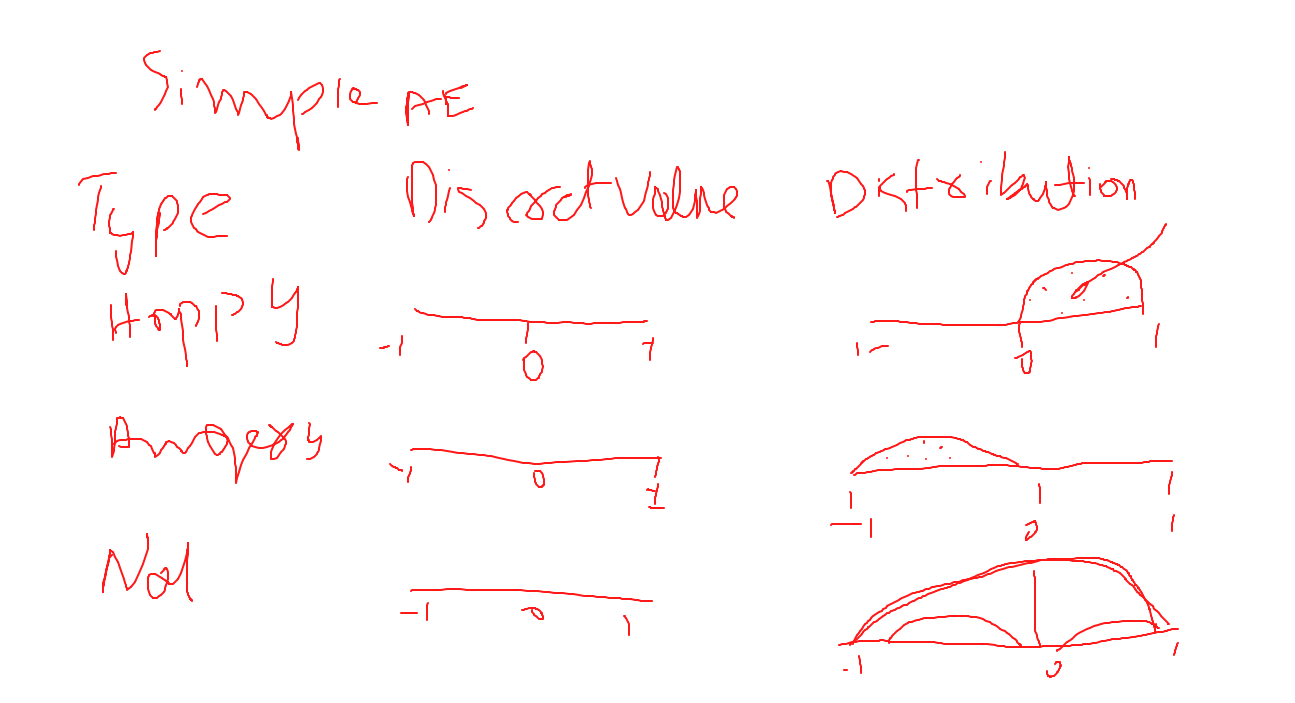 Simple AE
Type Discrct Value Distribution
Happy -1 0 1 1- 0 1
Angery -1 0 1 -1 0 1
Nol -1 0 1 -1 0 1